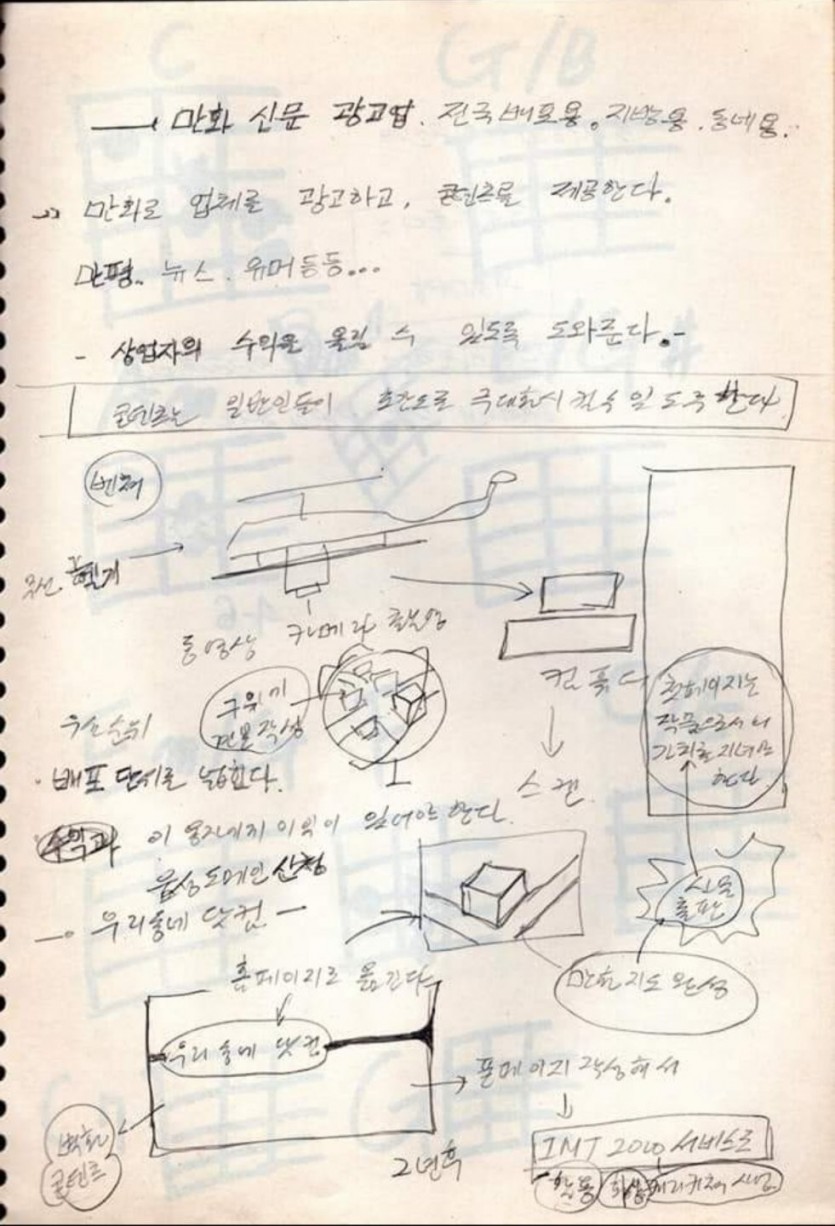 만화 신문 광고업. 전국 배포용. 지방용. 동네용.
만화로 업체를 광고하고, 콘텐츠를 제공한다.
만평.. 뉴스. 유머 등등...
- 상업자의 수익을 올릴 수 있도록 도와준다. -
콘텐츠는 일반인들이 극대화시킬 수 있도록 한다
벤처
무선 헬기
동영상 카메라
컴퓨터
스캔
우선순위
배포 단계를 넓힌다.
이 용자에게 이익이 있어야 한다.
음성 도메인 신청
우리동네 닷컴 -
첫페이지는
작품으로서의
가치를 지녀야
한다
신문
출판
만화지도 완성
홈페이지로 옮긴다
우리동네 닷컴
만화
콘텐츠
폰페이지 작성해서
2년후
IMT 2000 서비스로
활용
캐리커쳐 사업
G/B
C